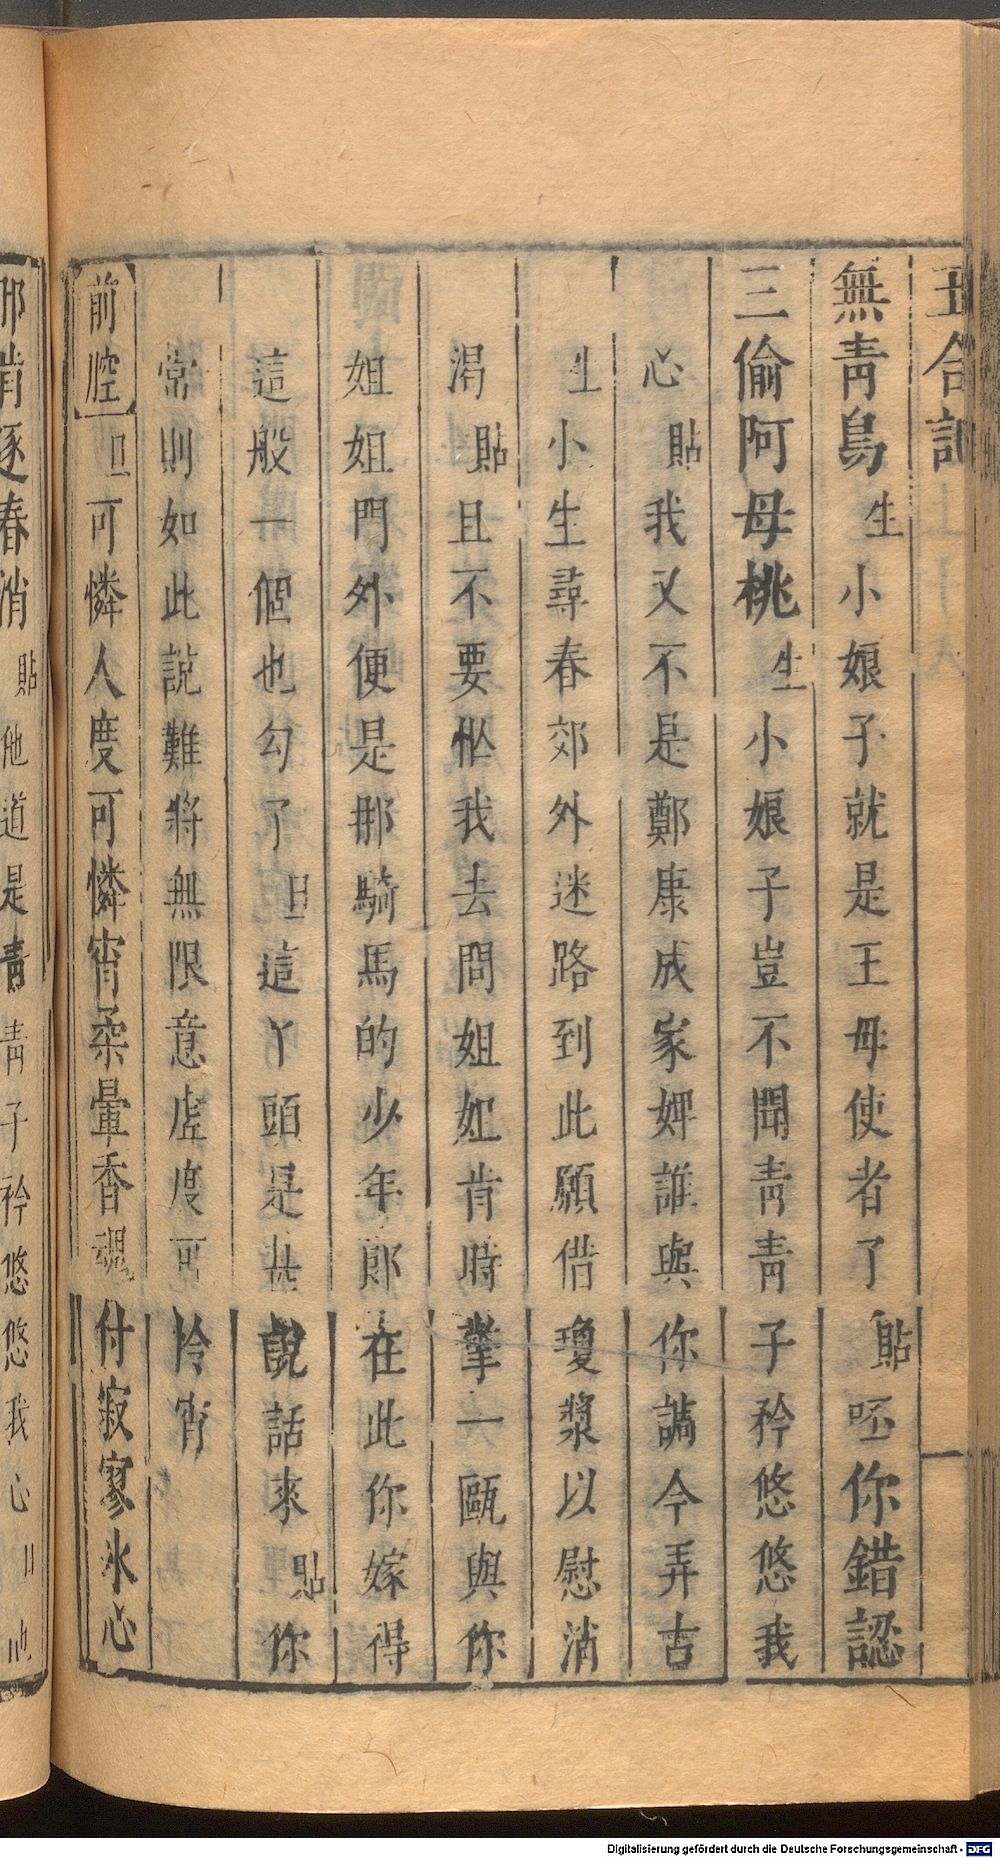 無青鳥生小娘子就是王母使者了貼呸你錯認
三偷阿母桃生小娘子豈不聞青青子衿悠悠我
心貼我又不是鄭康成家婢誰與你講今弄古
生小生尋春郊外迷路到此願借瓊漿以慰消
渴貼且不要忙我去問姐姐肯時擎一甌與你
姐姐門外便是那騎馬的少年郎在此你嫁得
這般一個也勾了旦這丫頭是甚說話來貼你
常則如此說難將無限意虛度可怜宵
前腔旦可憐人度可憐宵柔暈香魂付寂寥氷心
那肯逐春消貼他道是青青子衿悠悠我心旦
Digitalisierung gefördert durch die Deutsche Forschungsgemeinschaft - DFG